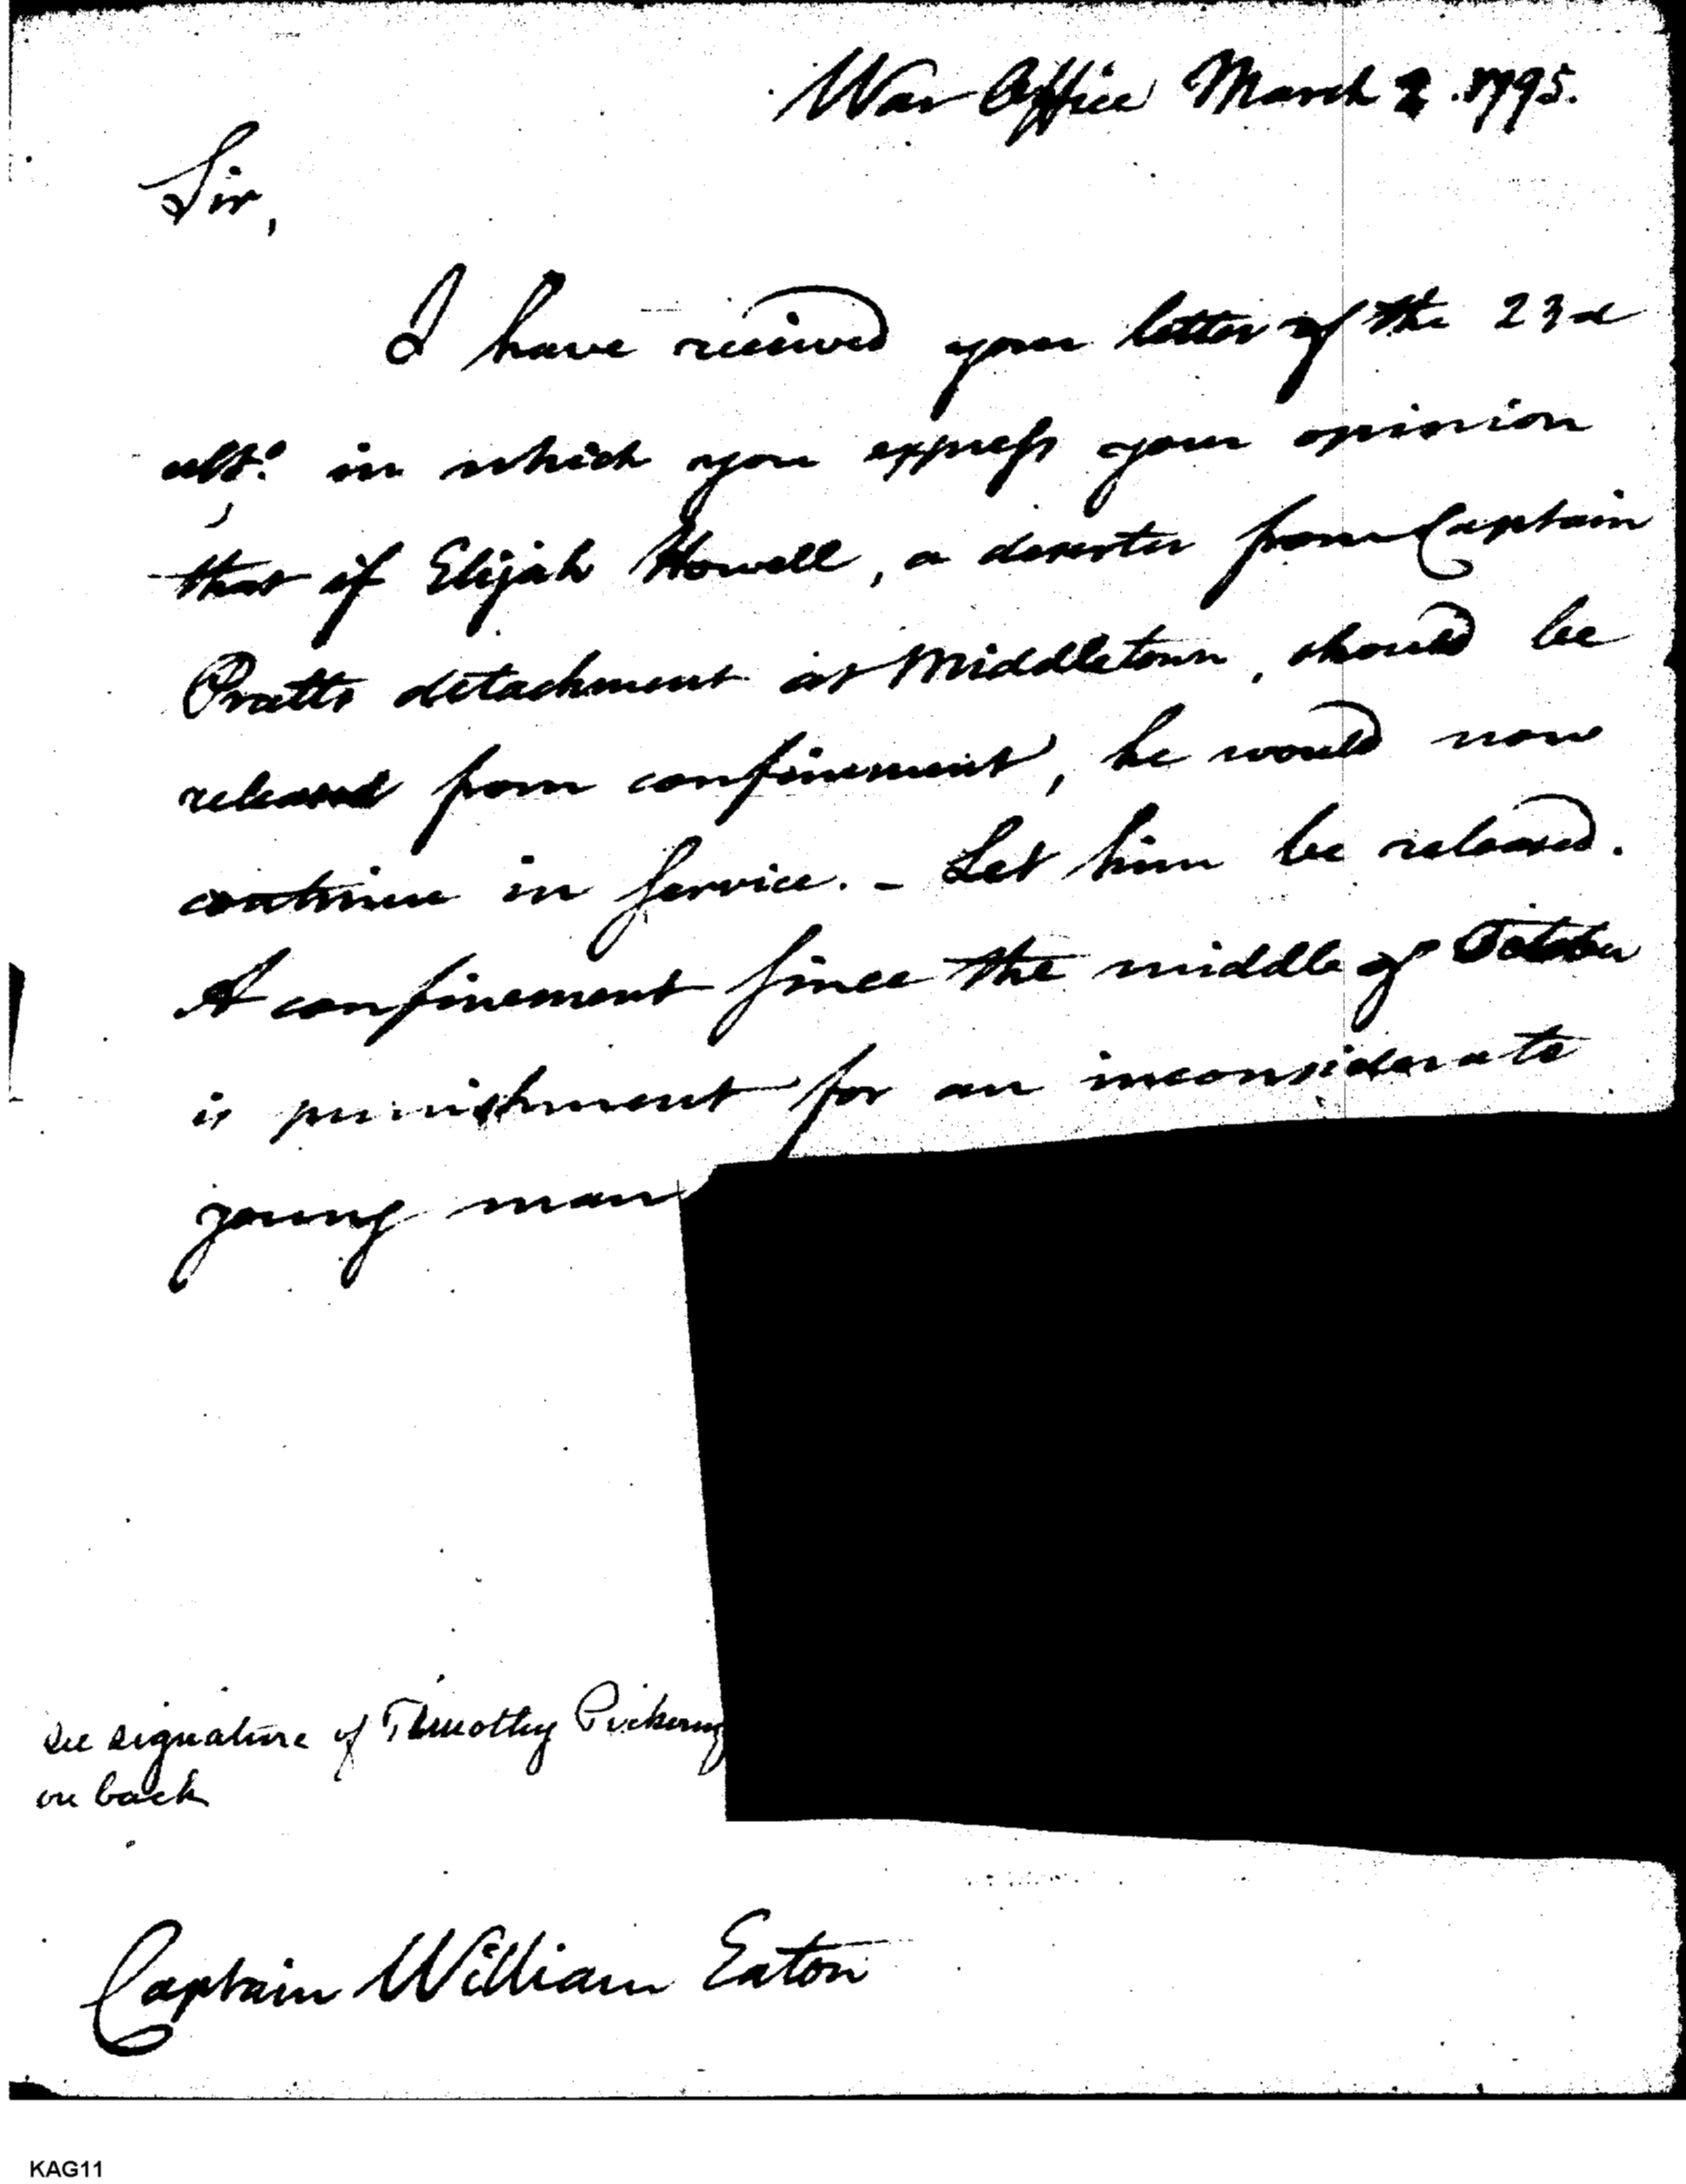 War Office March 2. 1795.
Sir,
I have received your letter of the 23d
ulto. in which you express your opinion
that if Elijah Howell, a deserter from Captain
Pratts detachment at Middletown, should be
released from confinement, he would now
continue in service. - Let him be released.
A confinement since the middle of October
is punishment for an inconsiderate
young man
See signature of Timothy Pickering
on back
Captain William Eaton
KAG11